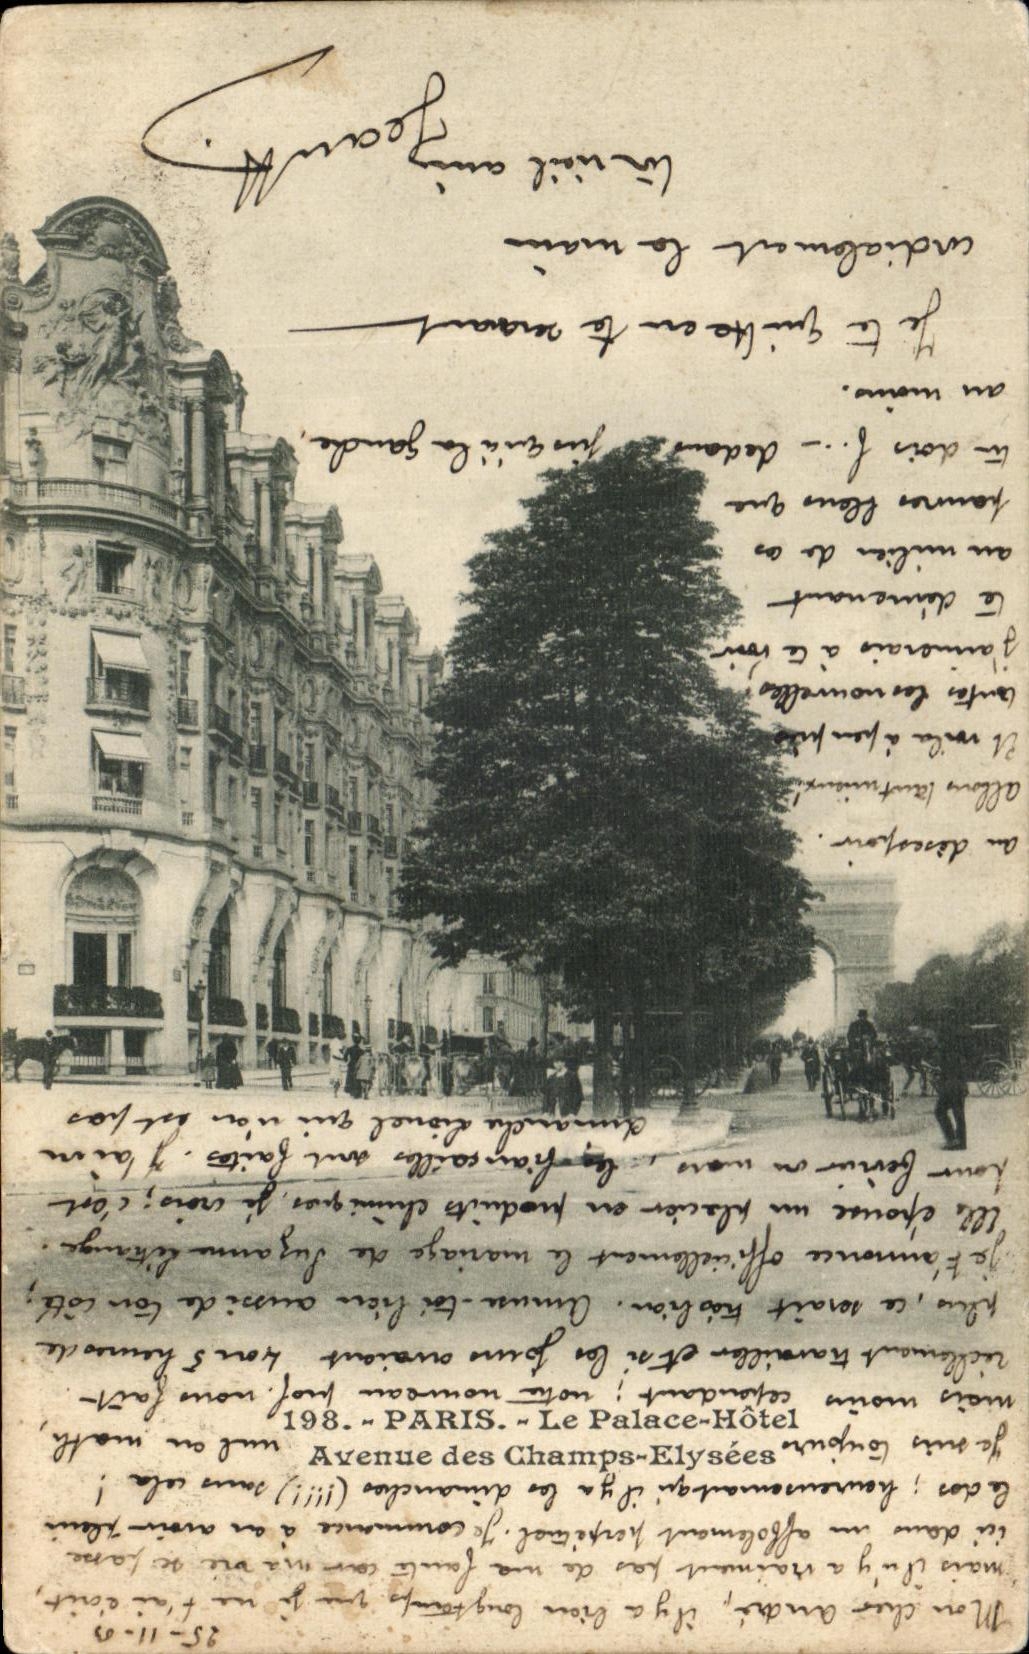 198. - PARIS. - Le Palace-Hôtel
Avenue des Champs-Elysées
25-11-03
Mon cher André, il y a bien longtemps que je ne t'ai écrit,
mais il n'y a vraiment pas de ma faute car ma vie se passe
ici dans un affolement perpétuel. Je commence à en avoir plein
le dos ; heureusement qu'il y a les dimanches (!!!!) sans cela !
Je suis toujours nul en math,
mais moins cependant ; notre nouveau prof. nous fait
réellement travailler et si les jours avaient 4 ou 5 heures de
plus, ce serait très bien. Amuse-toi bien aussi de ton côté ;
je t'annonce officiellement le mariage de Suzanne
Elle épouse un placier en produits chimiques, je crois ; c'est
pour février ou mars, les fiançailles sont faites. J'ai vu
dimanche Lionel qui n'en est pas
au désespoir.
allons tant mieux !
Et voilà à peu près
toutes les nouvelles,
j'aimerais à te voir
te démenant
au milieu de ces
pauvres bleus que
tu dois f... dedans jusqu'à la gauche,
au moins.
Je te quitte en te serrant
cordialement la main
Un vieil ami
Jean